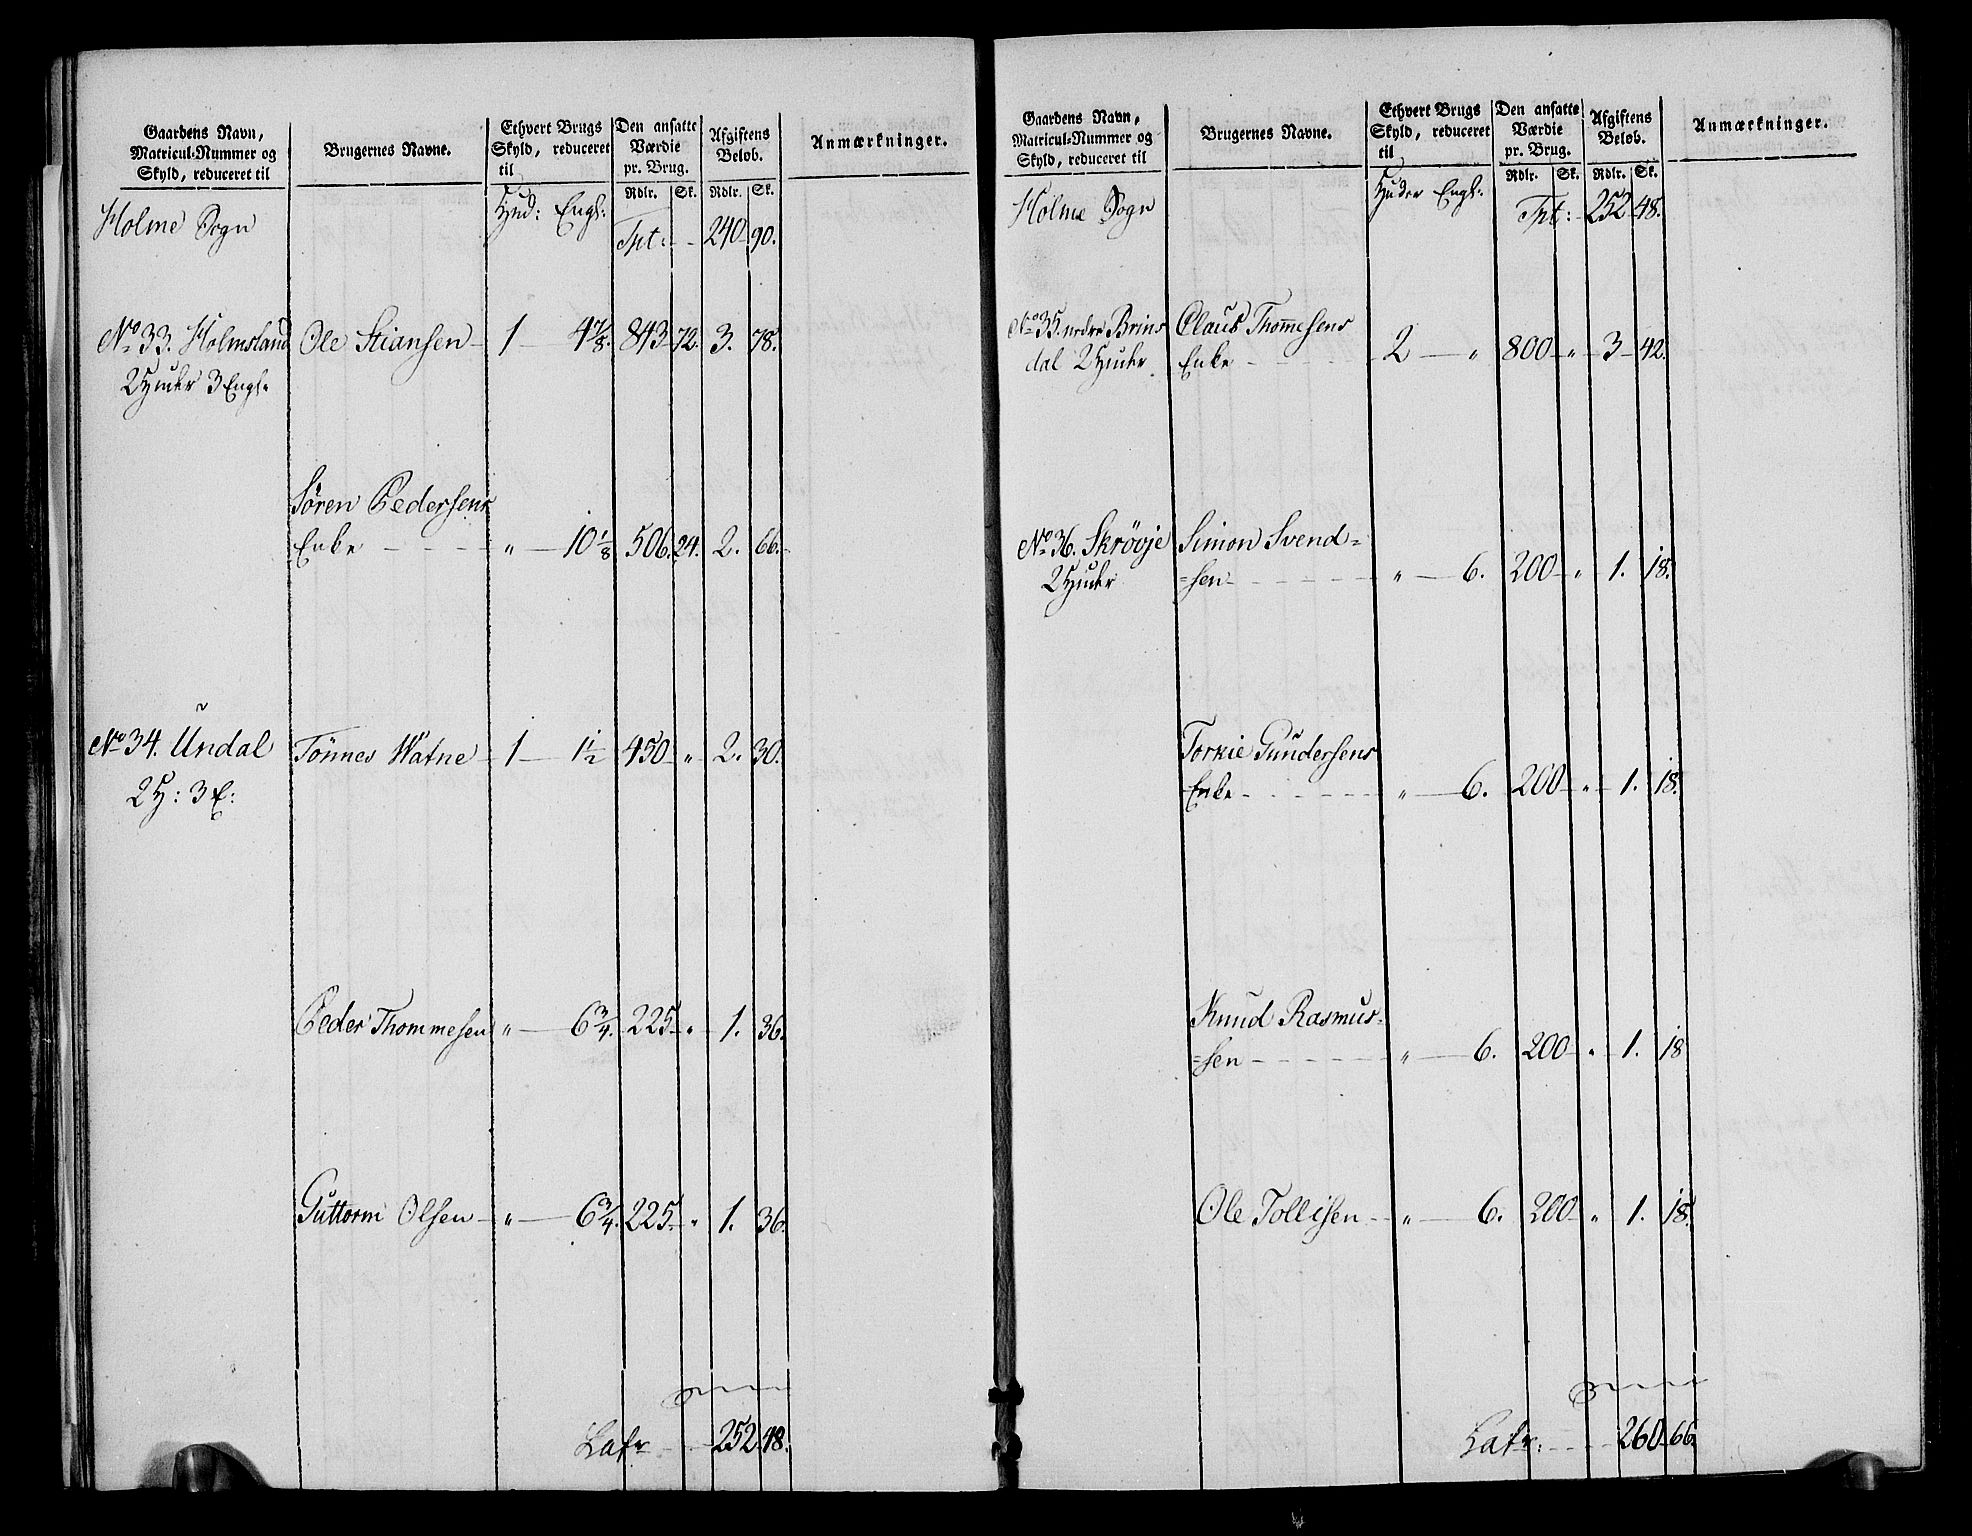 Gaardens Navn, Matricul-Nummer og Skyld, reduceret til | Brugernes Navne. | Ethvert Brugs Skyld, reduceret til | Den ansatte Værdie pr. Brug. | Afgiftens Beløb. | Anmærkninger.
Rdlr. Sk. Rdlr. Sk.
Holme Sogn Hud: Engl: Tpt: 240 90.
No 33. Holmsland Ole Stiansen 1 4 7/8. 843 72. 3. 78.
2 Huder 3 Engl.
Søren Pedersens
Enke " 10 1/8 506. 24. 2. 66.
No 34. Undal Tönnes Watne 1 1 1/2 450 " 2. 30.
2 H: 3 E:
Peder Thommesen " 6 3/4. 225. " 1. 36.
Guttorm Olsen " 6 3/4. 225. " 1. 36.
Latr 252 48.
Gaardens Navn, Matricul-Nummer og Skyld, reduceret til | Brugernes Navne. | Ethvert Brugs Skyld, reduceret til | Den ansatte Værdie pr. Brug. | Afgiftens Beløb. | Anmærkninger.
Rdlr. Sk. Rdlr. Sk.
Holme Sogn Huder Engl: Tpt: 252 48.
No 35. nedre Brins Claus Thommesens
dal 2 Huder Enke 2 " 800 " 3 42.
No 36. Skrøvje Simon Svend=
2 Huder =sen " 6. 200 " 1. 18.
Torkie Gundersens
Enke " 6. 200 " 1. 18.
Knud Rasmus=
=sen " 6. 200 " 1. 18
Ole Tollisen " 6. 200 " 1. 18.
Latr: 260 66.